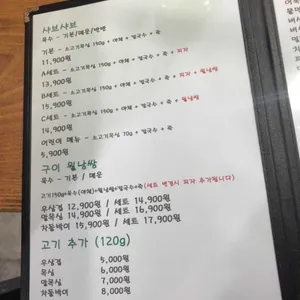 샤브샤브
육수 - 기본/매운/반반
기본 - 소고기목심 150g + 야채 + 칼국수 + 죽
11,900원
A세트 - 소고기목심 150g + 야채 + 칼국수 + 죽 + 피자
13,900원
B세트 - 소고기목심 150g + 야채 + 칼국수 + 죽 + 피자 + 월남쌈
15,900원
C세트 - 소고기목심 150g + 야채 + 칼국수 + 죽 + 월남쌈
14,900원
어린이 메뉴 - 소고기목심 70g + 칼국수 + 죽
5,900원
구이 월남쌈
육수 - 기본 / 매운
고기150g+육수(야채)+월남쌈+칼국수+죽(세트 변경시 피자 추가됩니다)
우삼겹 12,900원 / 세트 14,900원
앞목심 14,900원 / 세트 16,900원
차돌박이 15,900원 / 세트 17,900원
고기 추가 (120g)
우삼겹 5,000원
목심 6,000원
앞목심 7,000원
차돌박이 8,000원